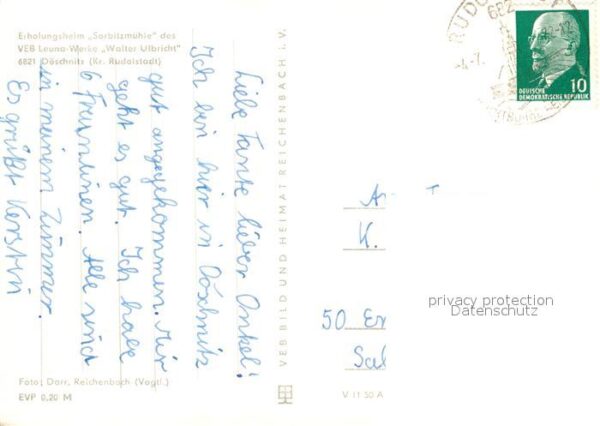 Erholungsheim „Sorbitzmühle" des
VEB Leuna-Werke „Walter Ulbricht"
6821 Döschnitz (Kr. Rudolstadt)
Liebe Tante lieber Onkel!
Ich bin hier in Döschnitz
gut angekommen. Mir
geht es gut. Ich habe
6 Freundinen. Alle sind
in meinem Zimmer.
Es grüßt Kerstin
Foto: Darr, Reichenbach (Vogtl.)
EVP 0,20 M
VEB BILD UND HEIMAT REICHENBACH I. V.
V 11 50 A
RUDO
682
DEUTSCHE
DEMOKRATISCHE REPUBLIK
10
K.
50 Er
Sal
privacy protection
Datenschutz